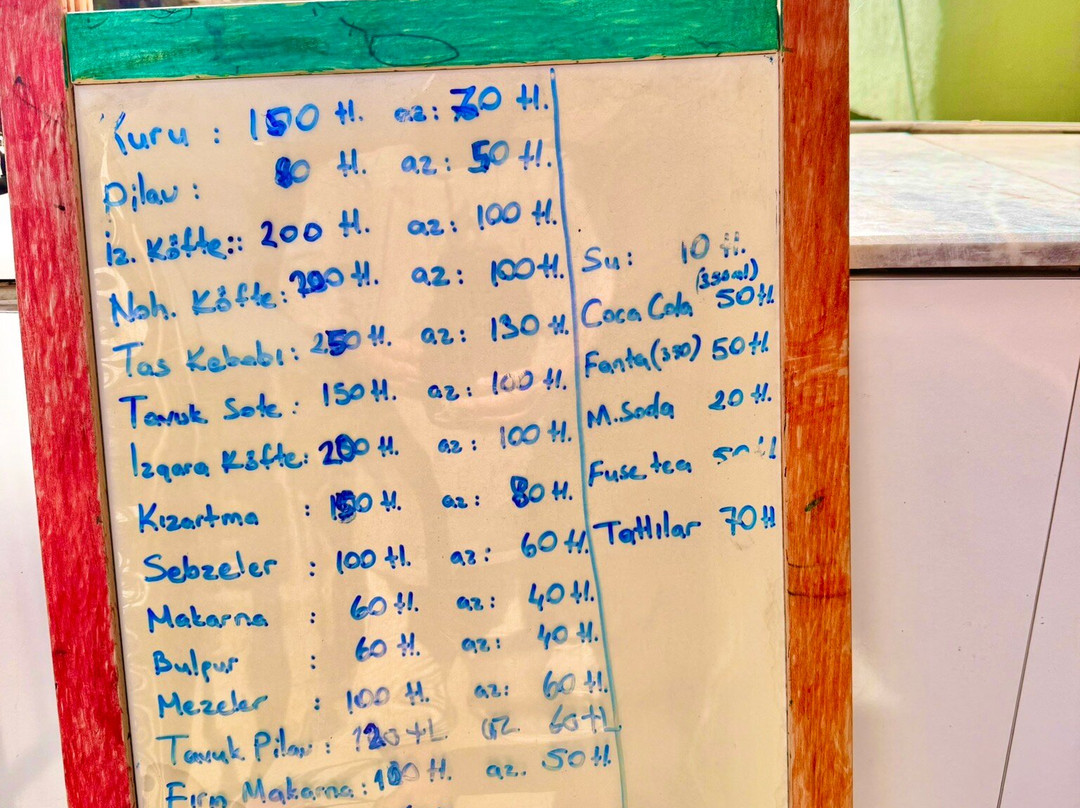 Kuru : 150 tl. az: 70 tl.
Pilav : 80 tl. az: 50 tl.
İz. Köfte:: 200 tl. az: 100 tl.
Noh. Köfte: 200 tl. az: 100 tl.
Tas Kebabı: 250 tl. az: 130 tl.
Tavuk Sote: 150 tl. az: 100 tl.
Izgara Köfte: 200 tl. az: 100 tl.
Kızartma : 150 tl. az: 80 tl.
Sebzeler : 100 tl. az: 60 tl.
Makarna : 60 tl. az: 40 tl.
Bulgur : 60 tl. az: 40 tl.
Mezeler : 100 tl. az: 60 tl.
Tavuk Pilav: 120 tL az. 60 tL
Fırın Makarna: 100 tl. az. 50 tl.
Su: 10 tl.
(350ml)
Coca Cola 50 tl
Fanta(330) 50 tl
M.Soda 20 tl.
Fuse tea 50 tl
Tatlılar 70 tl